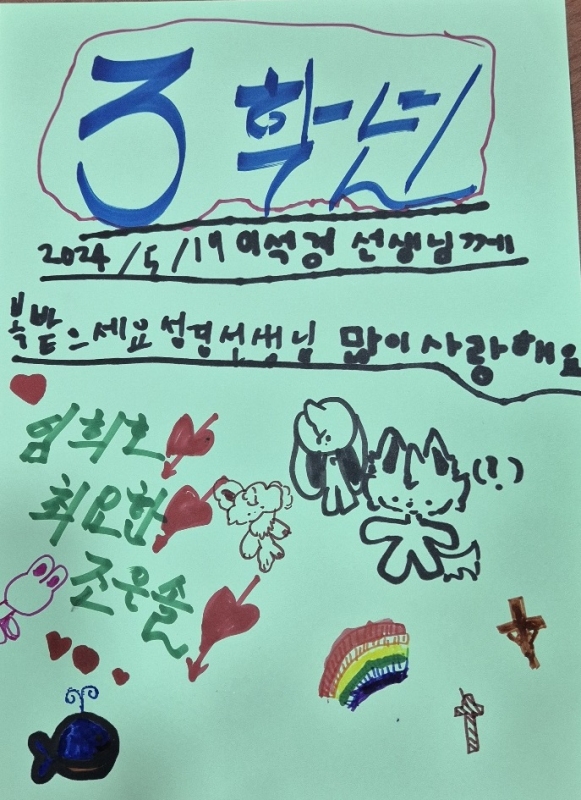 3 학년
2024/5/19 이석경 선생님께
복 받으세요 성경선생님 많이 사랑해요
임희호
최요한
조은솔
(?)